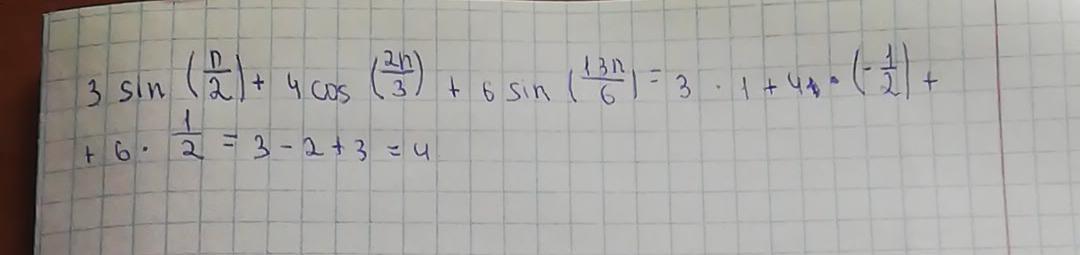 3 sin (π/2) + 4 cos (2π/3) + 6 sin (13π/6) = 3 · 1 + 4 · (-1/2) +
+ 6 · 1/2 = 3 - 2 + 3 = 4